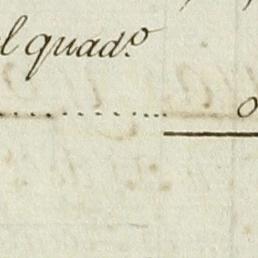 l quad.º
........... 0